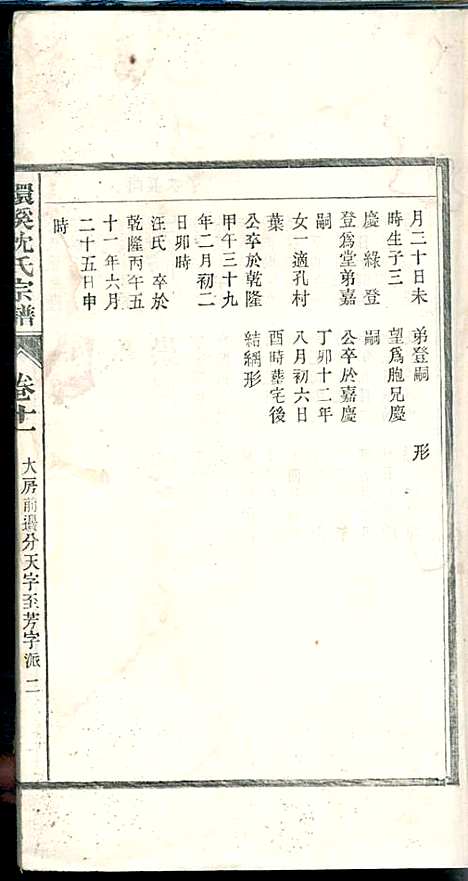 月二十日未
時生子三
慶 綠 登
登爲堂弟嘉
嗣
女一適孔村
葉
公卒於乾隆
甲午三十九
年二月初二
日卯時
汪氏 卒於
乾隆丙午五
十一年六月
二十五日申
時
弟登嗣
望爲胞兄慶
嗣
公卒於嘉慶
丁卯十二年
八月初六日
酉時塟宅後
結網形
形
環溪沈氏宗譜
卷十一
大房前邊分天字至芳字派 二